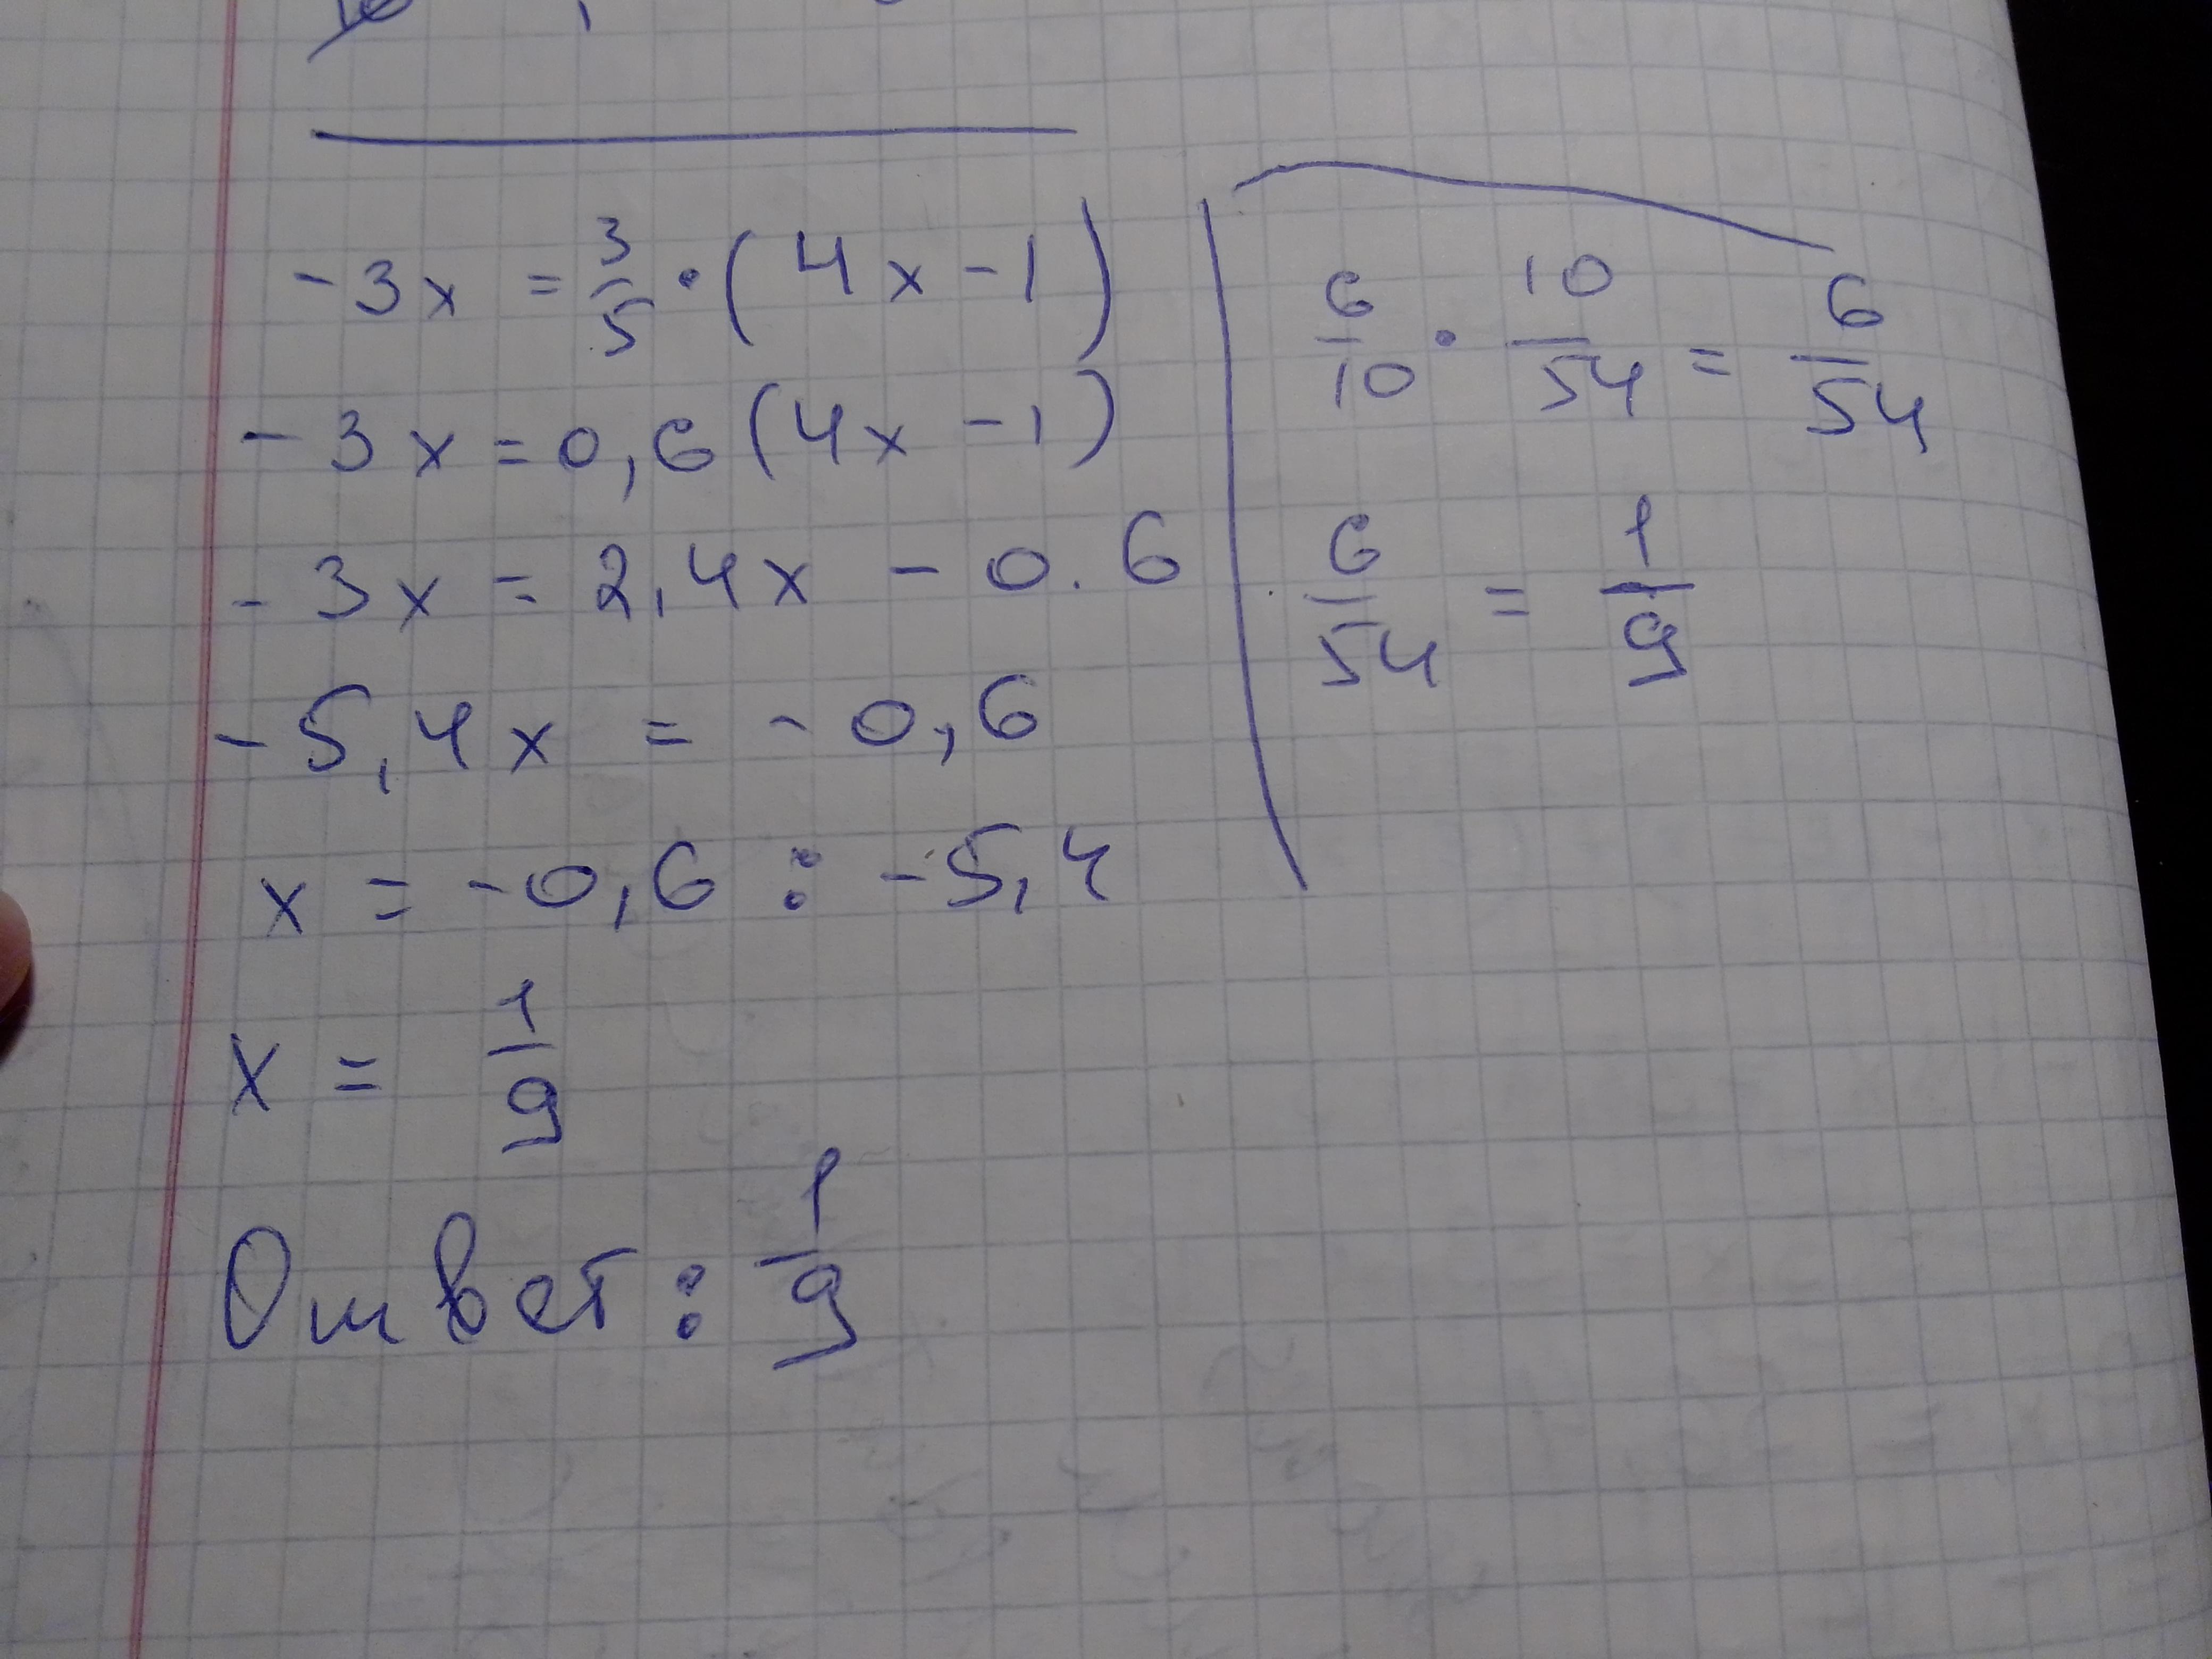 -3x = 3/5 · (4x - 1)
-3x = 0,6(4x - 1)
-3x = 2,4x - 0.6
-5,4x = -0,6
x = -0,6 : -5,4
x = 1/9
Ответ: 1/9
6/10 · 10/54 = 6/54
6/54 = 1/9